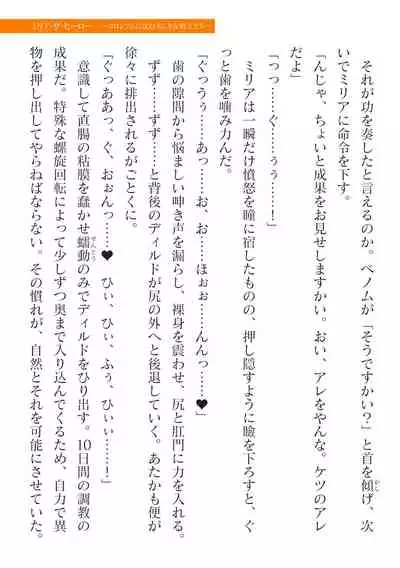 ミリア・ザ・ヒーロー
それが功を奏したと言えるのか。ベノムが「そうですかい？」と首を傾げ、次
いでミリアに命令を下す。
「んじゃ、ちょいと成果をお見せしますかい。おい、アレをやんな。ケツのアレ
「っつ……ぐ……ぅぅ……！」
ミリアは一瞬だけ憤怒を瞳に宿したものの、押し隠すように瞼を下ろすと、ぐ
っと歯を噛み力んだ。
「ぐっうぅ……あっ……お、お……ほぉぉ……んんっ……♥」
歯の隙間から悩ましい呻き声を漏らし、裸身を震わせ、尻と肛門に力を入れる。
ずず……ずず……と背後のディルドが尻の外へと後退していく。あたかも便が
徐々に排出されるがごとくに。
「ぐっああっ、ぐ、おぉんっ……♥　ひぃ、ひぃ、ふぅ、ひぃぃ……！」
意識して直腸の粘膜を蠢かせ蠕動のみでディルドをひり出す。10日間の調教の
成果だ。特殊な螺旋回転によって少しずつ奥まで入り込んでくるため、自力で異
物を押し出してやらねばならない。その慣れが、自然とそれを可能にさせていた。